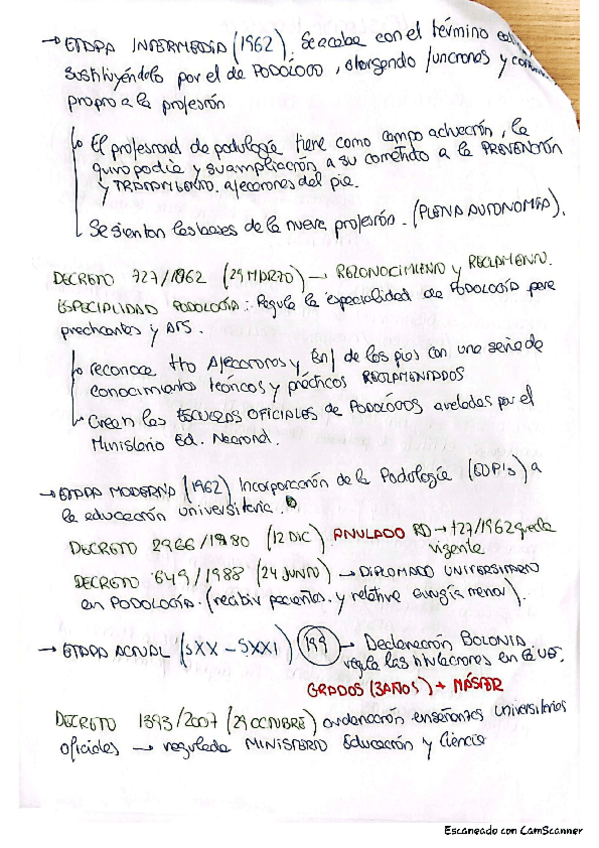 → ETAPA INTERMEDIA (1962). Se acaba con el término
sustituyéndolo por el de PODÓLOGO, otorgando funciones y
propio a la profesión
El profesional de podología tiene como campo actuación, la
quiropodia y su ampliación a su cometido a la PREVENCIÓN
y TRATAMIENTO. afecciones del pie.
Se sientan las bases de la nueva profesión. (PLENA AUTONOMÍA).
DECRETO 727/1962 (29 MARZO) → RECONOCIMIENTO y REGLAMENTO.
ESPECIALIDAD PODOLOGÍA: Regula la especialidad de PODOLOGÍA para
practicantes y ATS.
reconoce tto Afecciones y Enf de los pies con una serie de
conocimientos teóricos y prácticos REGLAMENTADOS
Crean las ESCUELAS OFICIALES de PODÓLOGOS avaladas por el
Ministerio Ed. Nacional.
→ ETAPA MODERNA (1962) Incorporación de la Podología (EDP's) a
la educación universitaria.
DECRETO 2966/1980 (12 DIC) ANULADO RD → 727/1962 queda
vigente
DECRETO 649/1988 (24 JUNIO) → DIPLOMADO UNIVERSITARIO
en PODOLOGÍA. (recibir pacientes y relativo cirugía menor).
→ ETAPA ACTUAL (SXX - SXXI) 199 → Declaración BOLONIA
regula las titulaciones en la UE.
GRADOS (3 AÑOS) + MÁSTER
DECRETO 1393/2007 (29 OCTUBRE) ordenación enseñanzas universitarias
oficiales → regulada MINISTERIO Educación y Ciencia
Escaneado con CamScanner